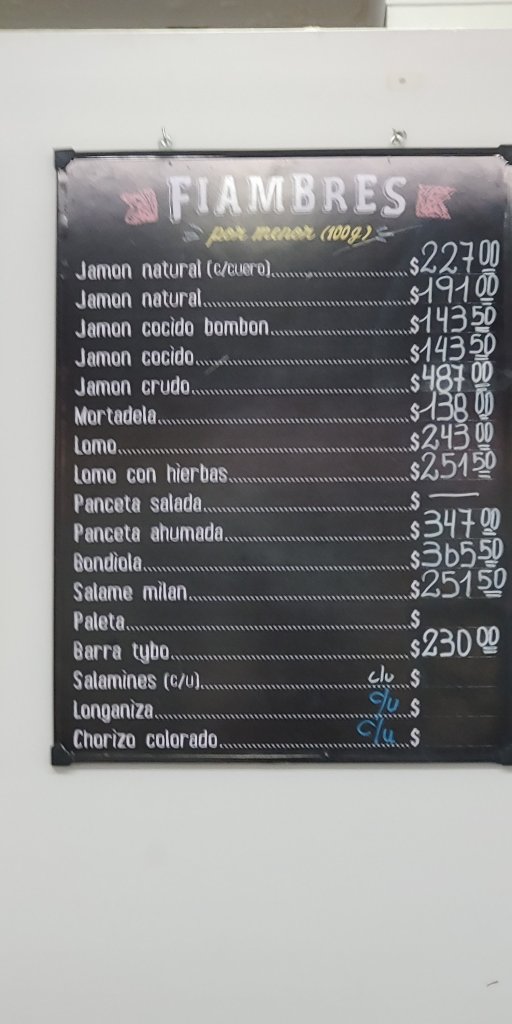 FIAMBRES
por menor (100g)
Jamon natural (c/cuero)........$22700
Jamon natural........$19100
Jamon cocido bombon........$14350
Jamon cocido........$14350
Jamon crudo........$48700
Mortadela........$13800
Lomo........$24300
Lomo con hierbas........$25150
Panceta salada........$ —
Panceta ahumada........$34700
Bondiola........$36550
Salame milan........$25150
Paleta........$
Barra tybo........$23000
Salamines (c/u)........c/u $
Longaniza........c/u $
Chorizo colorado........c/u $